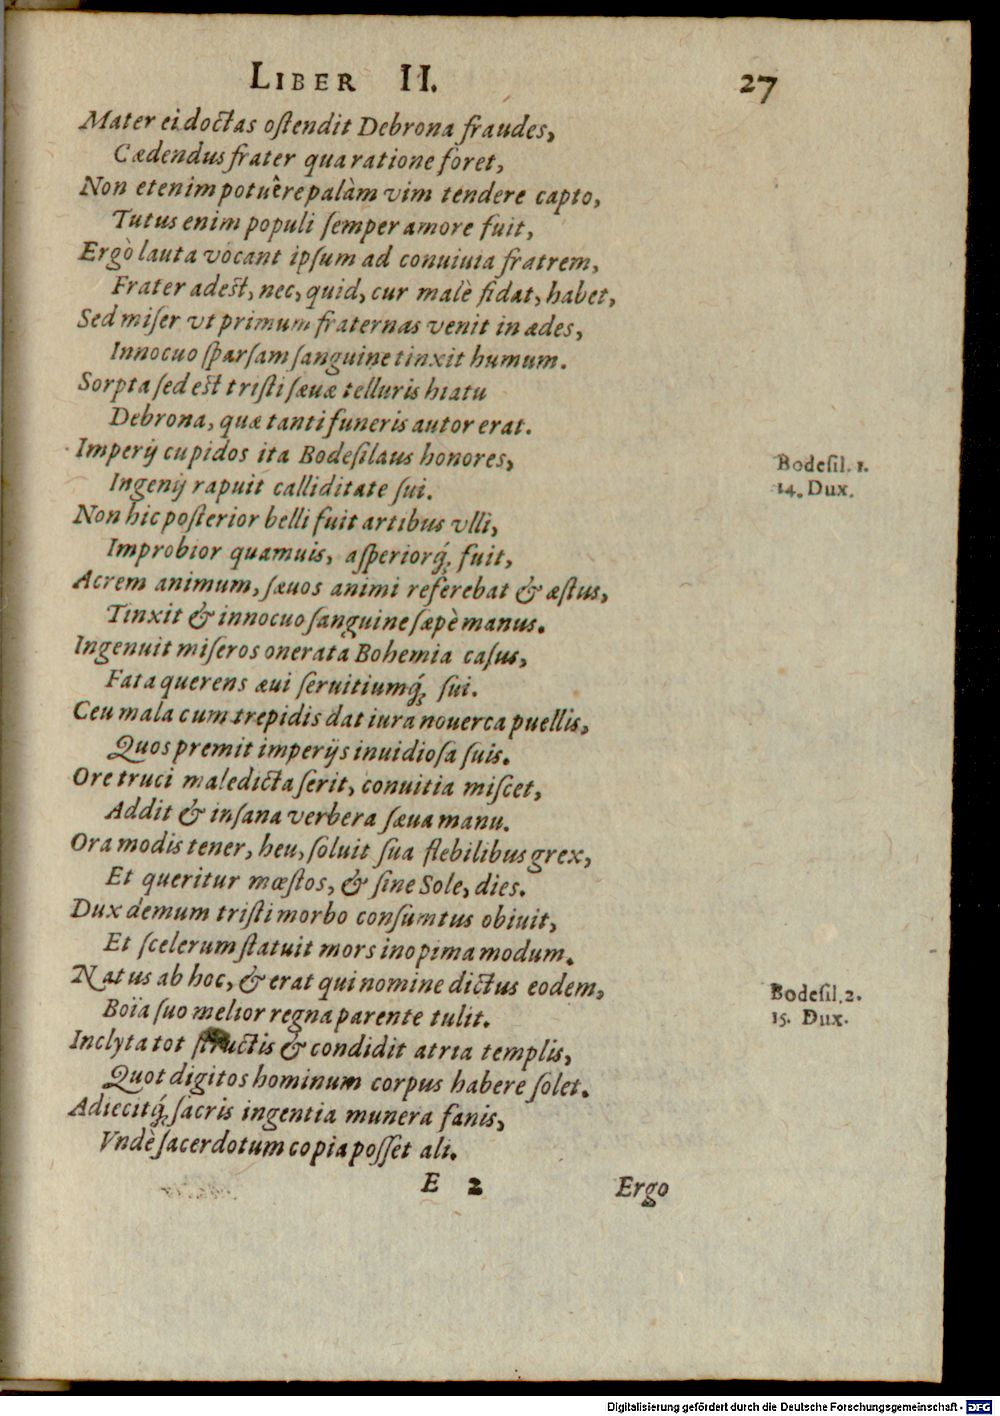 LIBER II. 27
Mater ei doctas oſtendit Debrona fraudes,
Cædendus frater qua ratione foret,
Non etenim potuêre palàm vim tendere capto,
Tutus enim populi ſemper amore fuit,
Ergò lauta vocant ipſum ad conuiuia fratrem,
Frater adeſt, nec, quid, cur malè fidat, habet,
Sed miſer vt primum fraternas venit in ædes,
Innocuo ſparſam ſanguine tinxit humum.
Sorpta ſed eſt triſti ſæuæ telluris hiatu
Debrona, quæ tanti funeris autor erat.
Imperij cupidos ita Bodeſilaus honores,
Bodeſil. 1.
Ingenij rapuit calliditate ſui.
14. Dux.
Non hic poſterior belli fuit artibus vlli,
Improbior quamuis, aſperiorq́; fuit,
Acrem animum, ſæuos animi referebat & æſtus,
Tinxit & innocuo ſanguine ſæpè manus.
Ingenuit miſeros onerata Bohemia caſus,
Fata querens æui ſeruitiumq́; ſui.
Ceu mala cum trepidis dat iura nouerca puellis,
Quos premit imperijs inuidioſa ſuis.
Ore truci maledicta ſerit, conuitia miſcet,
Addit & inſana verbera ſæua manu.
Ora modis tener, heu, ſoluit ſua flebilibus grex,
Et queritur mœſtos, & ſine Sole, dies.
Dux demum triſti morbo conſumtus obiuit,
Et ſcelerum ſtatuit mors inopima modum.
Natus ab hoc, & erat qui nomine dictus eodem,
Bodeſil. 2.
Boïa ſuo melior regna parente tulit.
15. Dux.
Inclyta tot ſtructis & condidit atria templis,
Quot digitos hominum corpus habere ſolet.
Adiecitq́; ſacris ingentia munera fanis,
Vndè ſacerdotum copia poſſet ali.
E 2 Ergo
Digitalisierung gefördert durch die Deutsche Forschungsgemeinschaft - DFG